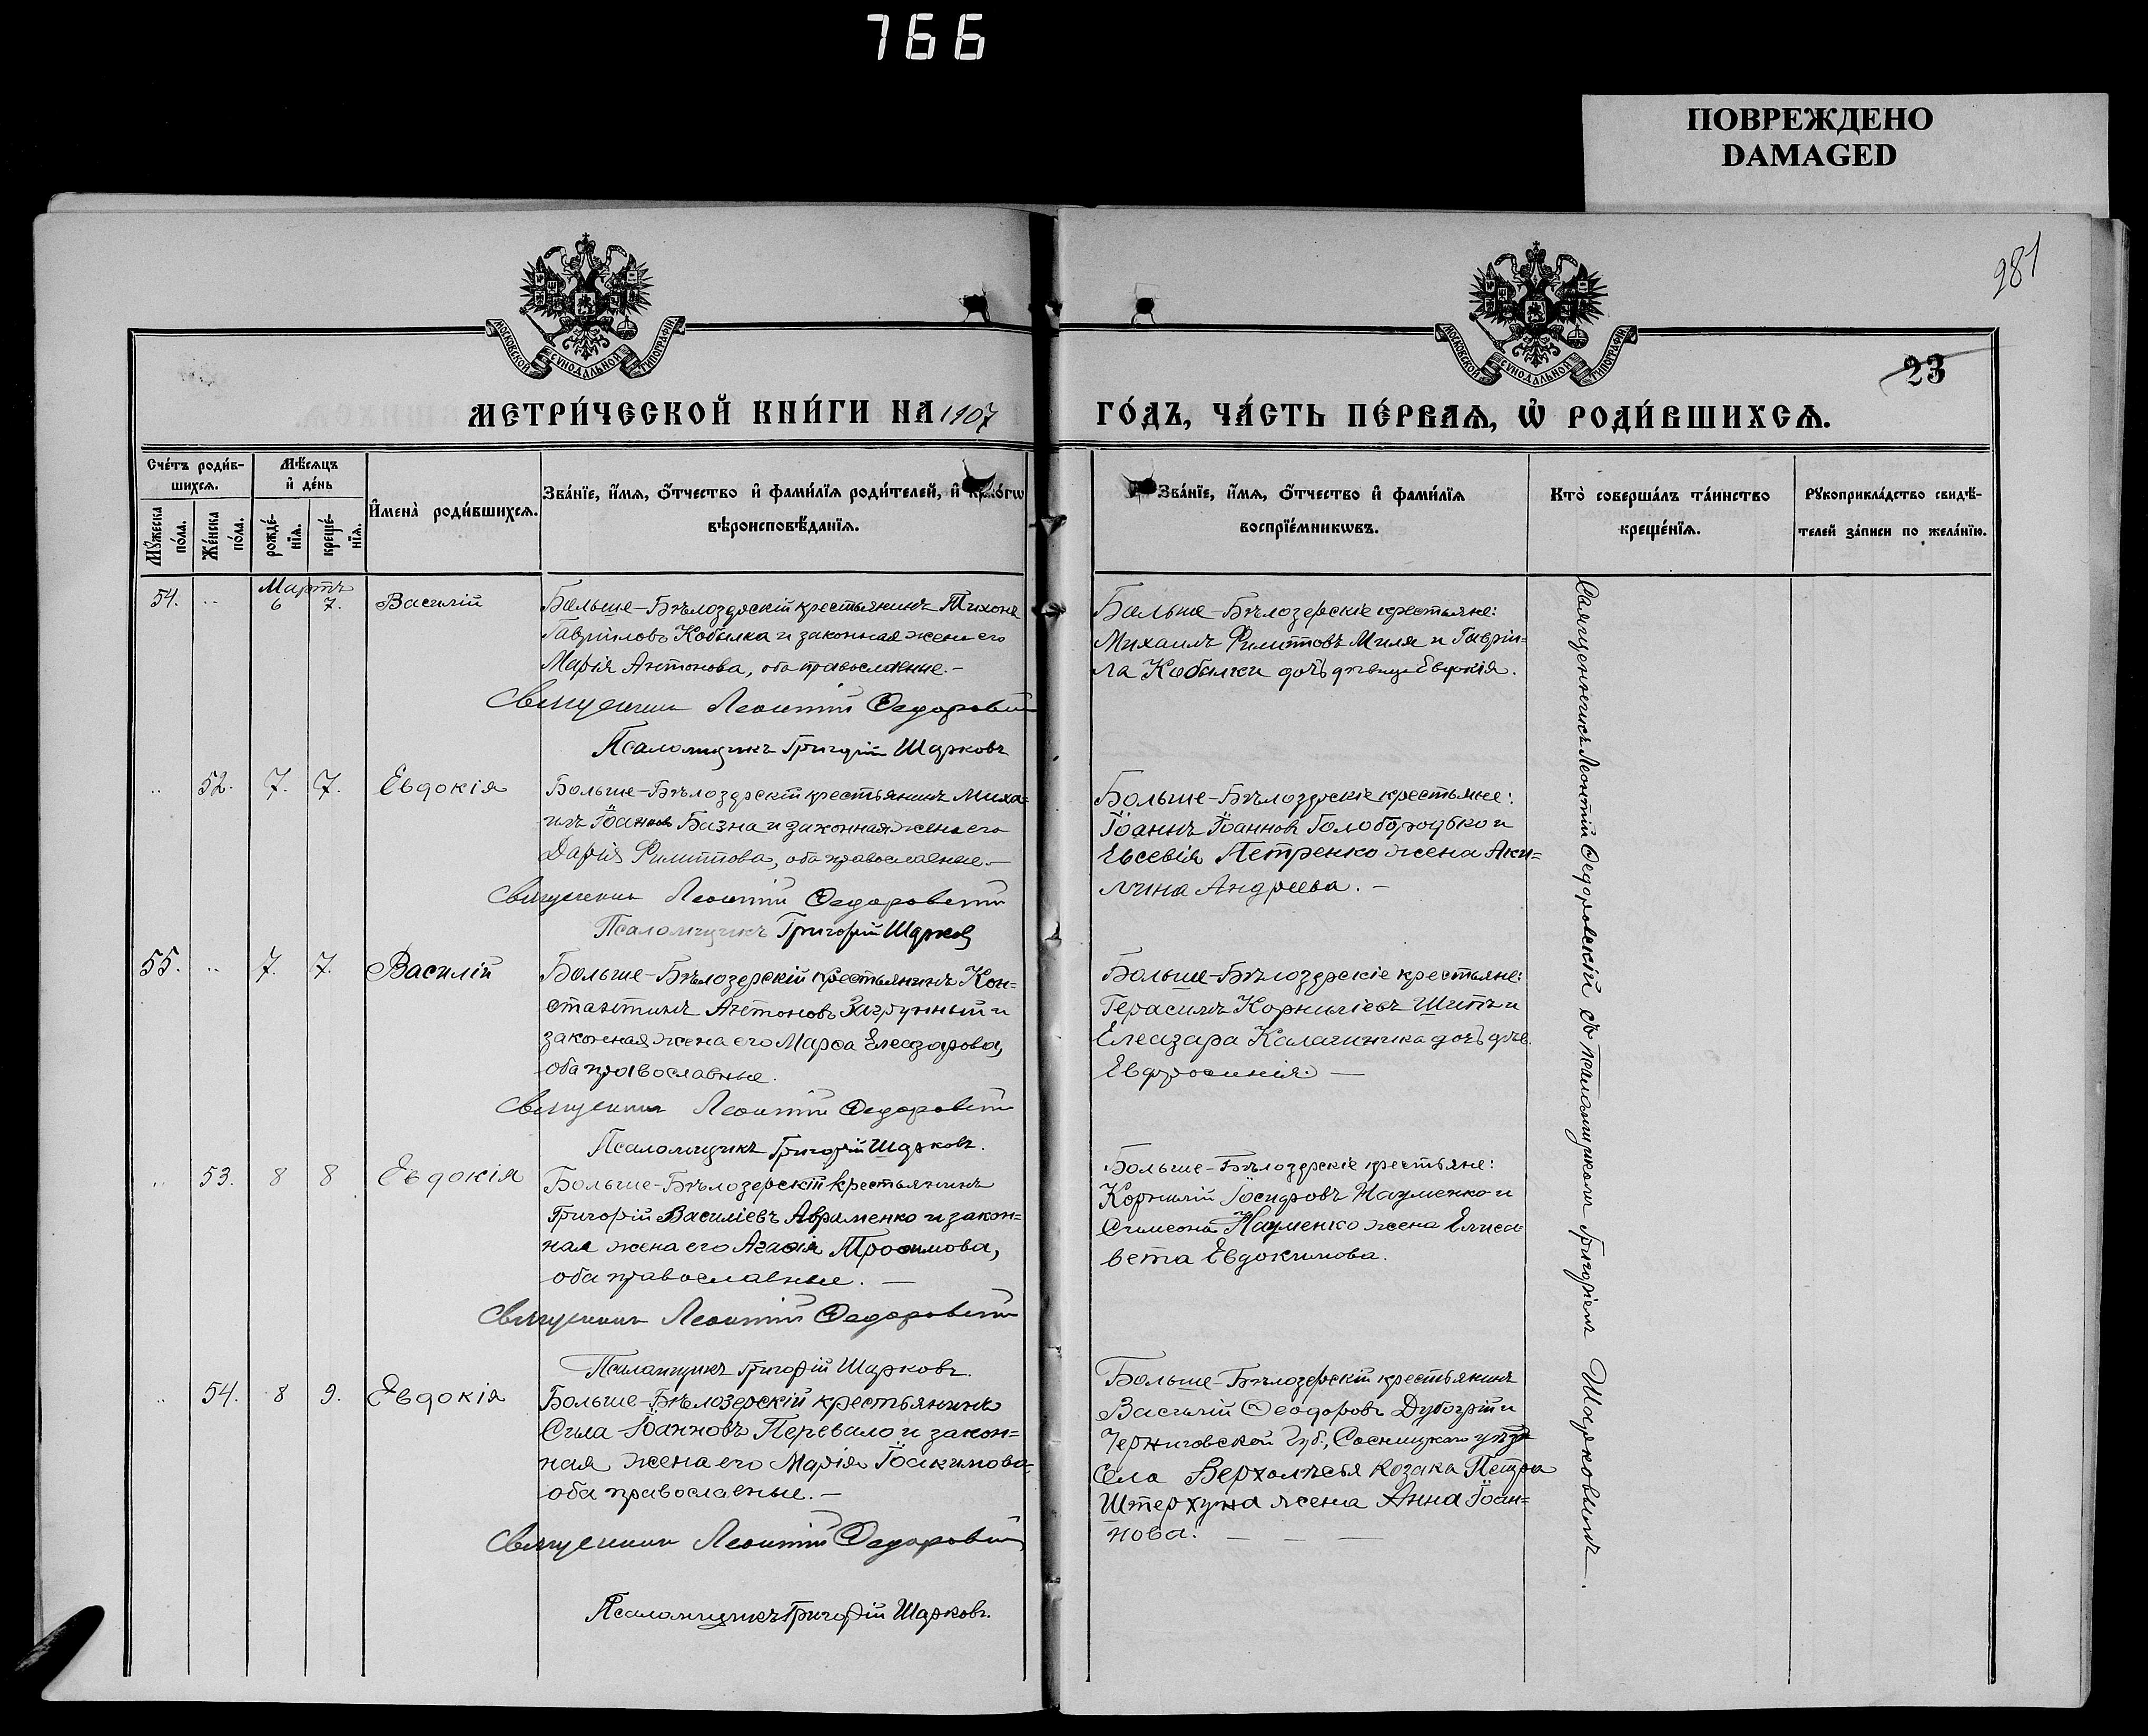 766
ПОВРЕЖДЕНО
DAMAGED
281
МОСКОВСКОЙ СѴНОДАЛЬНОЙ ТИПОГРАФІИ
МОСКОВСКОЙ СѴНОДАЛЬНОЙ ТИПОГРАФІИ
23
МЕТРИ́ЧЕСКОЙ КНИ́ГИ НА 1907
ГО́ДЪ, ЧА́СТЬ ПЕ́РВАѦ, Ѡ҆ РОДИ́ВШИХСѦ.
Сче́тъ роди́в-
шихсѧ.
Мѣ́сѧцъ
и҆ де́нь
Мꙋ́жеска
по́ла.
Же́нска
по́ла.
рожде́-
нїѧ.
креще́-
нїѧ.
И҆мена̀ роди́вшихсѧ.
Зва́нїе, и҆́мѧ, ѻ҆́тчество и҆ фами́лїѧ роди́телей, и҆ како́гѡ
вѣроисповѣ́данїѧ.
Зва́нїе, и҆́мѧ, ѻ҆́тчество и҆ фами́лїѧ
воспрїе́мникѡвъ.
Кто̀ соверша́лъ та́инство
креще́нїѧ.
Рꙋкоприкла́дство свидѣ́-
телей за́писи по жела́нїю.
Мартъ
54. " 6 7. Василій
Больше-Бѣлозерскій крестьянинъ Тихонъ
Гавріиловъ Кобылка и законная жена его
Марія Антонова, оба православные.-
Священникъ Леонтій Федоровскій
Псаломщикъ Григорій Шарковъ
Больше-Бѣлозерскіе крестьяне:
Михаилъ Филипповъ Миля и Гавріи=
ла Кобылки дочь дѣвица Евдокія.
" 52. 7. 7. Евдокія
Больше-Бѣлозерскій крестьянинъ Миха=
илъ Іоанновъ Базна и законная жена его
Дарія Филиппова, оба православные.-
Священникъ Леонтій Федоровскій
Псаломщикъ Григорій Шарковъ
Больше-Бѣлозерскіе крестьяне:
Іоаннъ Іоанновъ Голобородько и
Евсевія Петренко жена Аки=
лина Андреева. -
55. " 7. 7. Василій
Больше-Бѣлозерскій крестьянинъ Кон=
стантинъ Антоновъ и
законная жена его Марѳа Елеазарова,
оба православные.
Священникъ Леонтій Федоровскій
Псаломщикъ Григорій Шарковъ.
Больше-Бѣлозерскіе крестьяне:
Герасимъ Корниліевъ Шипъ и
Елеазара Калашника дочь дѣв.
Евфросинія. -
" 53. 8 8 Евдокія
Больше-Бѣлозерскій крестьянинъ
Григорій Василіевъ Авраменко и закон=
ная жена его Агаѳія Трофимова,
оба православные. -
Священникъ Леонтій Федоровскій
Псаломщикъ Григорій Шарковъ.
Больше-Бѣлозерскіе крестьяне:
Корнилій Іосифовъ Науменко и
Симеона Науменко жена Елиса
вета Евдокимова.
" 54. 8 9. Евдокія
Больше-Бѣлозерскій крестьянинъ
Сила Іоанновъ Перевало и закон=
ная жена его Марія Іоакимова,
оба православные. -
Священникъ Леонтій Федоровскій
Псаломщикъ Григорій Шарковъ.
Больше-Бѣлозерскій крестьянинъ
Василій Ѳеодоровъ и
Черниговской губ., Сосницкаго уѣзда
села Верхолѣсья козака Петра
Штерхуна жена Анна Іоан=
нова. - - -
Священникъ Леонтій Ѳедоровскій съ псаломщикомъ Григоріемъ Шарковымъ.